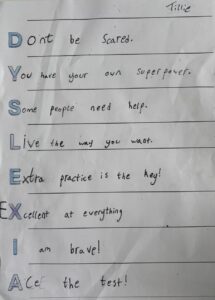 Tillie
Dont be Scared.
You have your own superpower.
Some people need help.
Live the way you want.
Extra practice is the key!
EXcellent at everything
I am brave!
ACE the test!